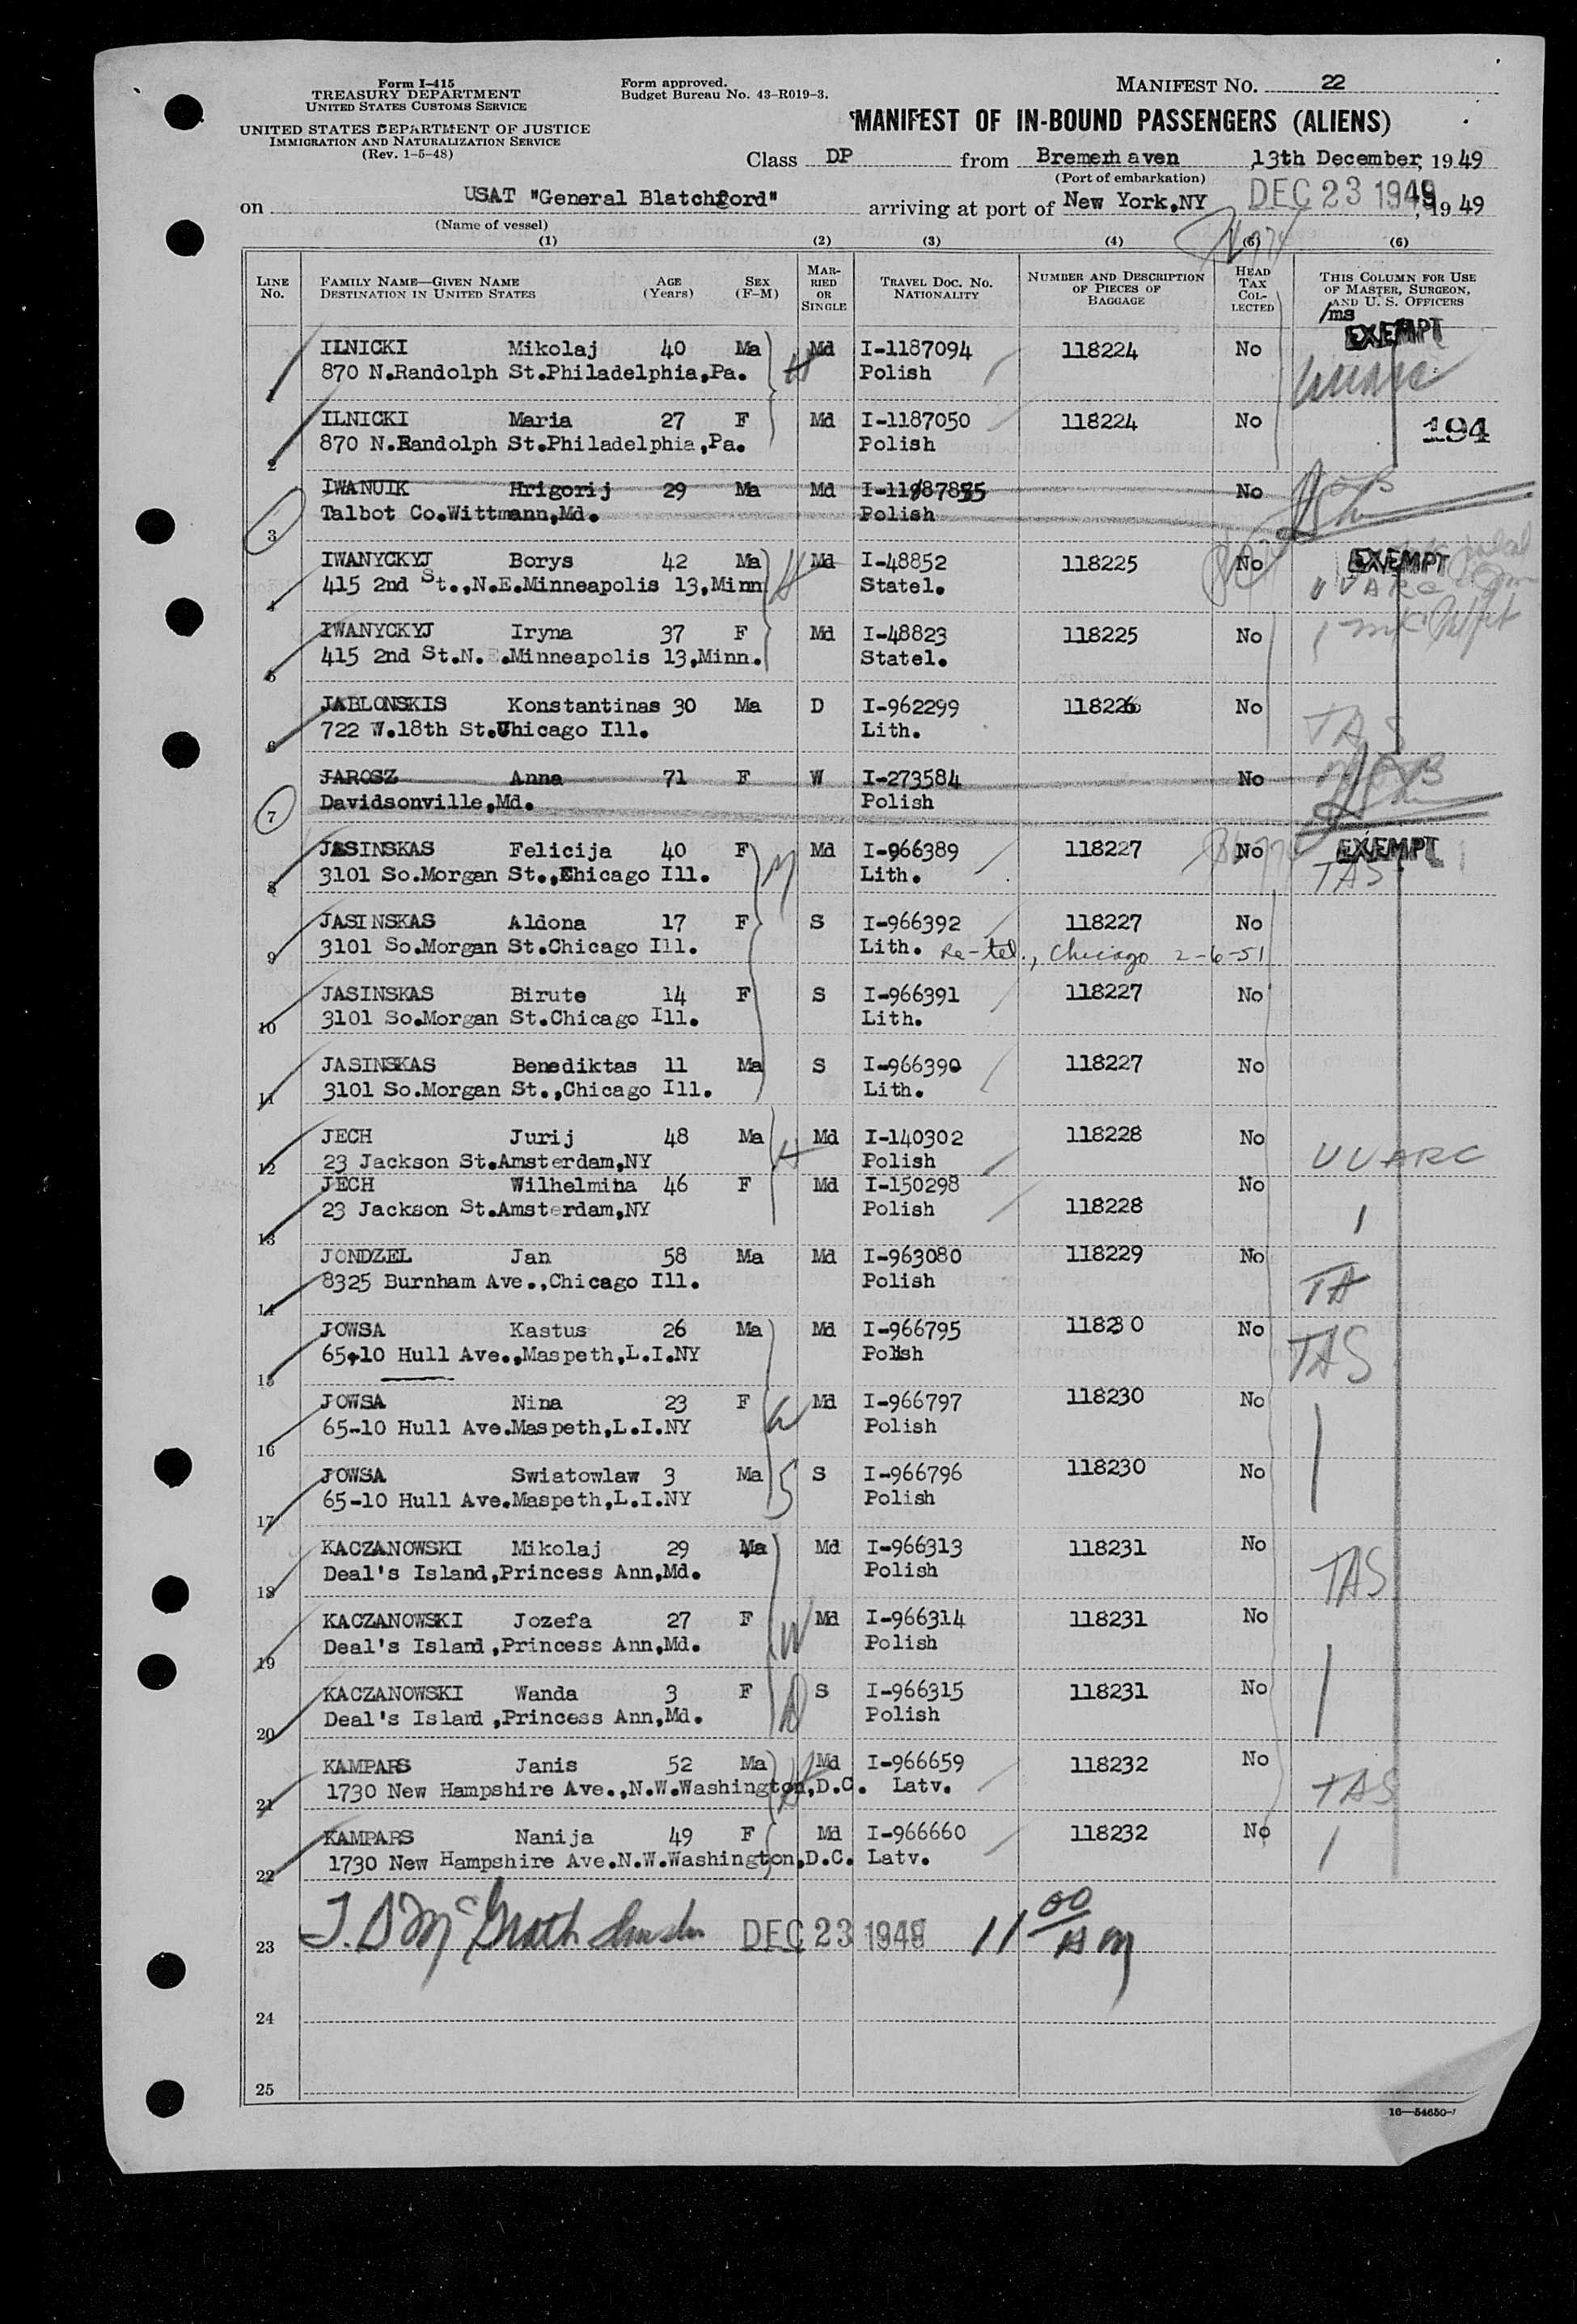 Form I-415
TREASURY DEPARTMENT
UNITED STATES CUSTOMS SERVICE
UNITED STATES DEPARTMENT OF JUSTICE
IMMIGRATION AND NATURALIZATION SERVICE
(Rev. 1-5-48)
Form approved.
Budget Bureau No. 43-R019-3.
MANIFEST NO. 22
MANIFEST OF IN-BOUND PASSENGERS (ALIENS)
Class DP from Bremerhaven 13th December, 1949
(Port of embarkation)
on USAT "General Blatchford" arriving at port of New York,NY DEC 23 1949, 1949
(Name of vessel)
(1) (2) (3) (4) (5) (6)
LINE No. FAMILY NAME—GIVEN NAME DESTINATION IN UNITED STATES AGE (Years) SEX (F-M) MARRIED OR SINGLE TRAVEL DOC. NO. NATIONALITY NUMBER AND DESCRIPTION OF PIECES OF BAGGAGE HEAD TAX COLLECTED THIS COLUMN FOR USE OF MASTER, SURGEON, AND U. S. OFFICERS
/ms
EXEMPT
ILNICKI Mikolaj 40 Ma Md I-1187094 118224 No
1 870 N.Randolph St.Philadelphia,Pa. Polish
ILNICKI Maria 27 F Md I-1187050 118224 No 194
2 870 N.Randolph St.Philadelphia,Pa. Polish
IWANUIK Hrigorij 29 Ma Md I-1187855 No
3 Talbot Co.Wittmann,Md. Polish
IWANYCKYJ Borys 42 Ma Md I-48852 118225 No EXEMPT
4 415 2nd St.,N.E.Minneapolis 13,Minn Statel. UUARC
IWANYCKYJ Iryna 37 F Md I-48823 118225 No
5 415 2nd St.N.E.Minneapolis 13,Minn. Statel.
JABLONSKIS Konstantinas 30 Ma D I-962299 118226 No
6 722 W.18th St.Chicago Ill. Lith. TAS
JAROSZ Anna 71 F W I-273584 No
7 Davidsonville,Md. Polish
JASINSKAS Felicija 40 F Md I-966389 118227 No EXEMPT
8 3101 So.Morgan St.,Chicago Ill. Lith. TAS
JASINSKAS Aldona 17 F S I-966392 118227 No
9 3101 So.Morgan St.Chicago Ill. Lith. Re-tel., Chicago 2-6-51
JASINSKAS Birute 14 F S I-966391 118227 No
10 3101 So.Morgan St.Chicago Ill. Lith.
JASINSKAS Benediktas 11 Ma S I-966390 118227 No
11 3101 So.Morgan St.,Chicago Ill. Lith.
JECH Jurij 48 Ma Md I-140302 118228 No
12 23 Jackson St.Amsterdam,NY Polish UUARC
JECH Wilhelmina 46 F Md I-150298 No
13 23 Jackson St.Amsterdam,NY Polish 118228
JONDZEL Jan 58 Ma Md I-963080 118229 No
14 8325 Burnham Ave.,Chicago Ill. Polish TA
JOWSA Kastus 26 Ma Md I-966795 118230 No
15 65-10 Hull Ave.,Maspeth,L.I.NY Polish TAS
JOWSA Nina 23 F Md I-966797 118230 No
16 65-10 Hull Ave.Maspeth,L.I.NY Polish
JOWSA Swiatowlaw 3 Ma S I-966796 118230 No
17 65-10 Hull Ave.Maspeth,L.I.NY Polish
KACZANOWSKI Mikolaj 29 Ma Md I-966313 118231 No
18 Deal's Island,Princess Ann,Md. Polish TAS
KACZANOWSKI Jozefa 27 F Md I-966314 118231 No
19 Deal's Island,Princess Ann,Md. Polish
KACZANOWSKI Wanda 3 F S I-966315 118231 No
20 Deal's Island,Princess Ann,Md. Polish
KAMPARS Janis 52 Ma Md I-966659 118232 No
21 1730 New Hampshire Ave.,N.W.Washington,D.C. Latv. TAS
KAMPARS Nanija 49 F Md I-966660 118232 No
22 1730 New Hampshire Ave.N.W.Washington,D.C. Latv.
23 DEC 23 1949 11 00 AM
24
25